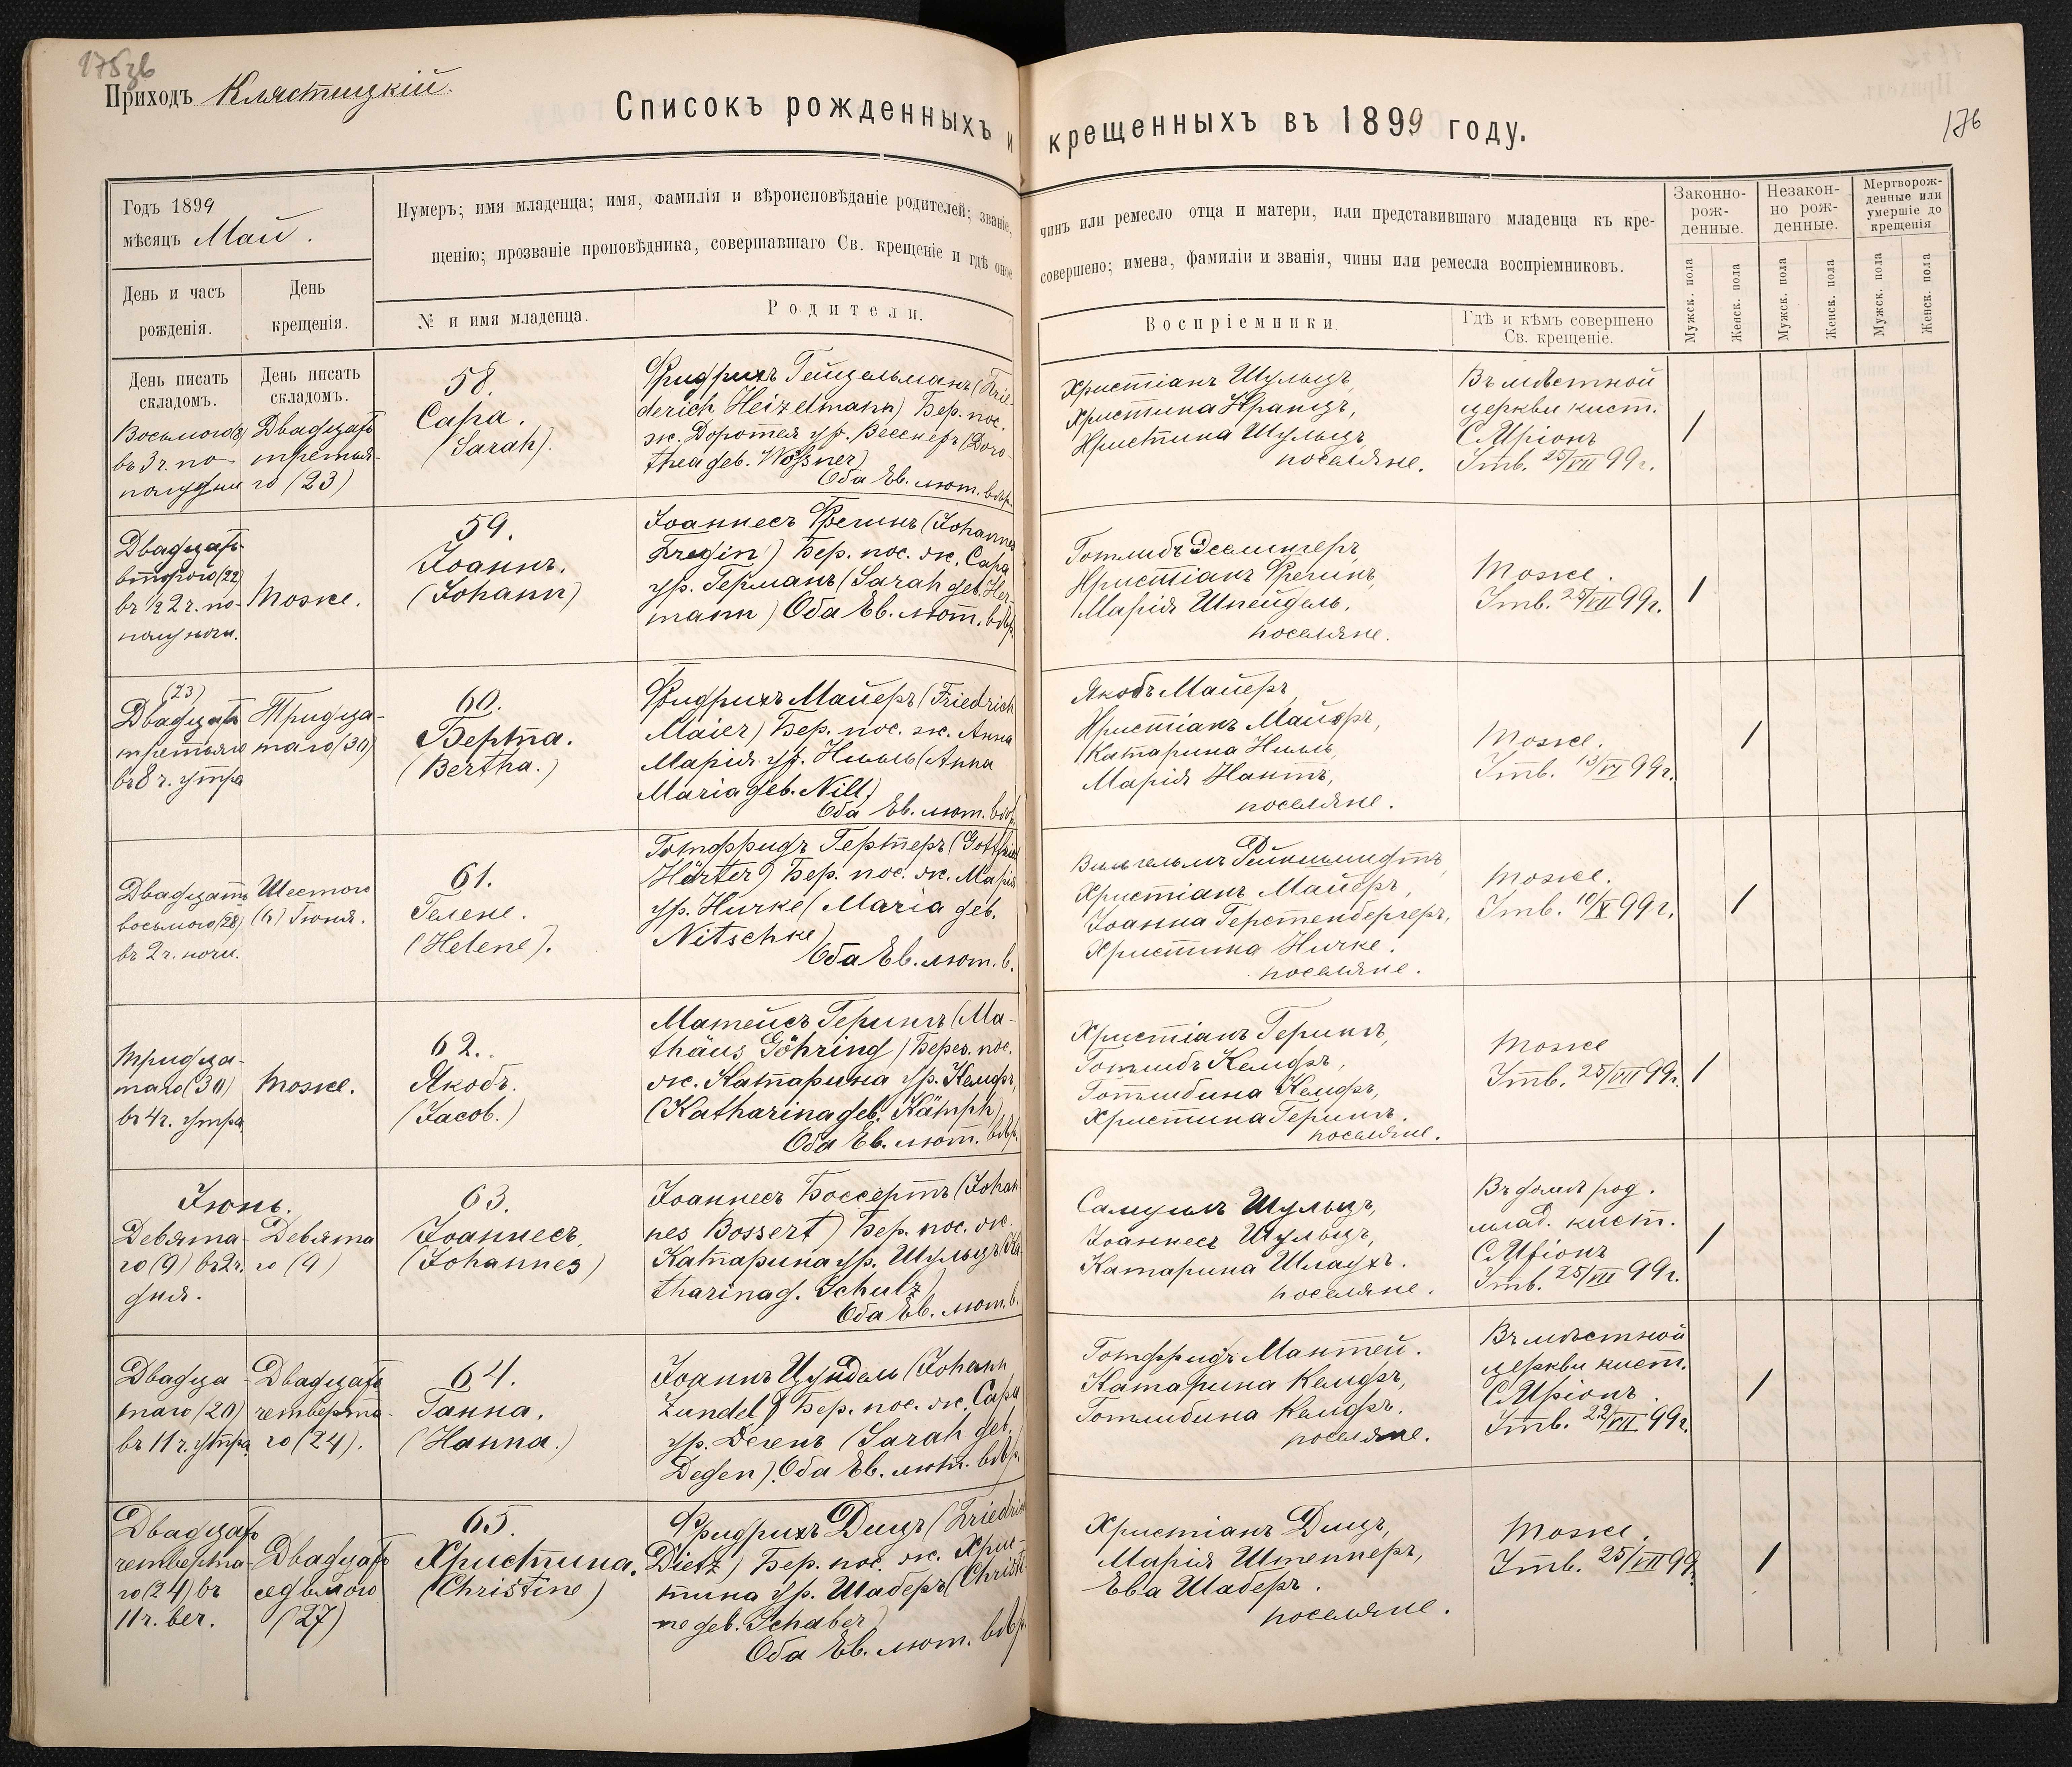 175об
176
Приходъ Клястицкій.
Списокъ рожденныхъ и крещенныхъ въ 1899 году.
Годъ 1899
мѣсяцъ Май.
Нумеръ; имя младенца; имя, фамилія и вѣроисповѣданіе родителей; званіе, чинъ или ремесло отца и матери, или представившаго младенца къ кре-
щенію; прозваніе проповѣдника, совершавшаго Св. крещеніе и гдѣ оное совершено; имена, фамиліи и званія, чины или ремесла воспріемниковъ.
Законно-
рож-
денные.
Незакон-
но рож-
денные.
Мертворож-
денные или
умершіе до
крещенія
День и часъ
рожденія.
День
крещенія.
№ и имя младенца.
Родители.
Воспріемники.
Гдѣ и кѣмъ совершено
Св. крещеніе.
Мужск. пола
Женск. пола
Мужск. пола
Женск. пола
Мужск. пола
Женск. пола
День писать
складомъ.
День писать
складомъ.
Восьмого(8)
въ 3 ч. по-
полудни
Двадцать
третья-
го (23)
58.
Сара.
(Sarah).
Фридрихъ Гейцельманъ (Frie-
derich Heizelmann) Бер. пос.
ж. Доротея ур. Весснеръ (Doro-
thea geb. Wößner)
Оба Ев. лют. вѣр.
Христіанъ Шульцъ,
Христина Кранцъ,
Христина Шульцъ,
поселяне.
Въ мѣстной
церкви кист.
С. Иріонъ
Утв. 25/VII 99г.
/
Двадцать
второго(22)
въ ½ 2 ч. по-
полуночи.
Тоже.
59.
Іоаннъ.
(Johann)
Іоаннесъ Фрегинъ (Johannes
Fregin) Бер. пос. ж. Сара
ур. Германъ (Sarah geb. Her-
mann) Оба Ев. лют. вѣр.
Христіанъ Фрегинъ,
Марія Шпейдель.
поселяне.
Тоже.
Утв. 25/VII 99г.
/
(23)
Двадцать
третьяго
въ 8 ч. утра
Тридца-
таго (30)
60.
Берта.
(Bertha.)
Фридрихъ Майеръ (Friedrich
Maier) Бер. пос. ж. Анна
Марія ур. Нилль (Anna
Maria geb. Nill)
Оба Ев. лют. вѣр.
Якобъ Майеръ,
Христіанъ Майеръ,
Катарина Нилль,
Марія Нантъ,
поселяне.
Тоже.
Утв. 13/VI 99г.
/
Двадцать
восьмого(28)
въ 2 ч. ночи.
Шестого
(6) Іюня.
61.
Гелене.
(Helene).
Готфридъ Гертеръ (Gottfried
Härter) Бер. пос. ж. Марія
ур. Ничке (Maria geb.
Nitschke)
Оба Ев. лют. в.
Вильгельмъ Рейншмидтъ,
Христіанъ Майеръ,
Іоанна Герстенбергеръ,
Христина Ничке.
поселяне.
Тоже.
Утв. 10/X 99г.
/
Тридца-
таго (30)
въ 4 ч. утра
Тоже.
62.
Якобъ.
(Jacob.)
Матейсъ Герингъ (Ma-
thäus Göhring) Берез. пос.
ж. Катарина ур. Кемфъ,
(Katharina geb. Kämpf)
Оба Ев. лют. вѣр.
Христіанъ Герингъ,
Готлибъ Кемфъ,
Готлибина Кемфъ,
Христина Герингъ.
поселяне.
Тоже
Утв. 25/VII 99г.
/
Іюнь.
Девята-
го (9) въ 2 ч.
дня.
Девята
го (9)
63.
Іоаннесъ,
(Johannes)
Іоаннесъ Боссертъ (Johan-
nes Bossert) Бер. пос. ж.
Катарина ур. Шульцъ (Ka-
tharina g. Schulz)
Оба Ев. лют. в.
Самуилъ Шульцъ,
Іоаннесъ Шульцъ,
Катарина Шлаухъ.
поселяне.
Въ домѣ род.
млад. кист.
С. Иріонъ
Утв. 25/VII 99г.
/
Двадца
таго (20)
въ 11 ч. утра
Двадцать
четверта-
го (24).
64.
Ганна.
(Hanna.)
Іоаннъ Цундель (Johann
Zundel) Бер. пос. ж. Сара
ур. Дегенъ (Sarah geb.
Degen). Оба Ев. лют. вѣр.
Готфридъ Мантей.
Катарина Кемфъ,
Готлибина Кемфъ.
поселяне.
Въ мѣстной
церкви кист.
С. Иріонъ.
Утв. 22/VII 99г.
/
Двадцать
четверта-
го (24) въ
11 ч. веч.
Двадцать
седьмого
(27)
65.
Христина.
(Christine)
Фридрихъ Дицъ (Friedrich
Dietz) Бер. пос. ж. Хрис-
тина ур. Шаберъ (Christi-
ne geb. Schaber)
Оба Ев. лют. вѣр.
Христіанъ Дицъ,
Марія Штепперъ,
Ева Шаберъ.
поселяне.
Тоже.
Утв. 25/VII 99
/